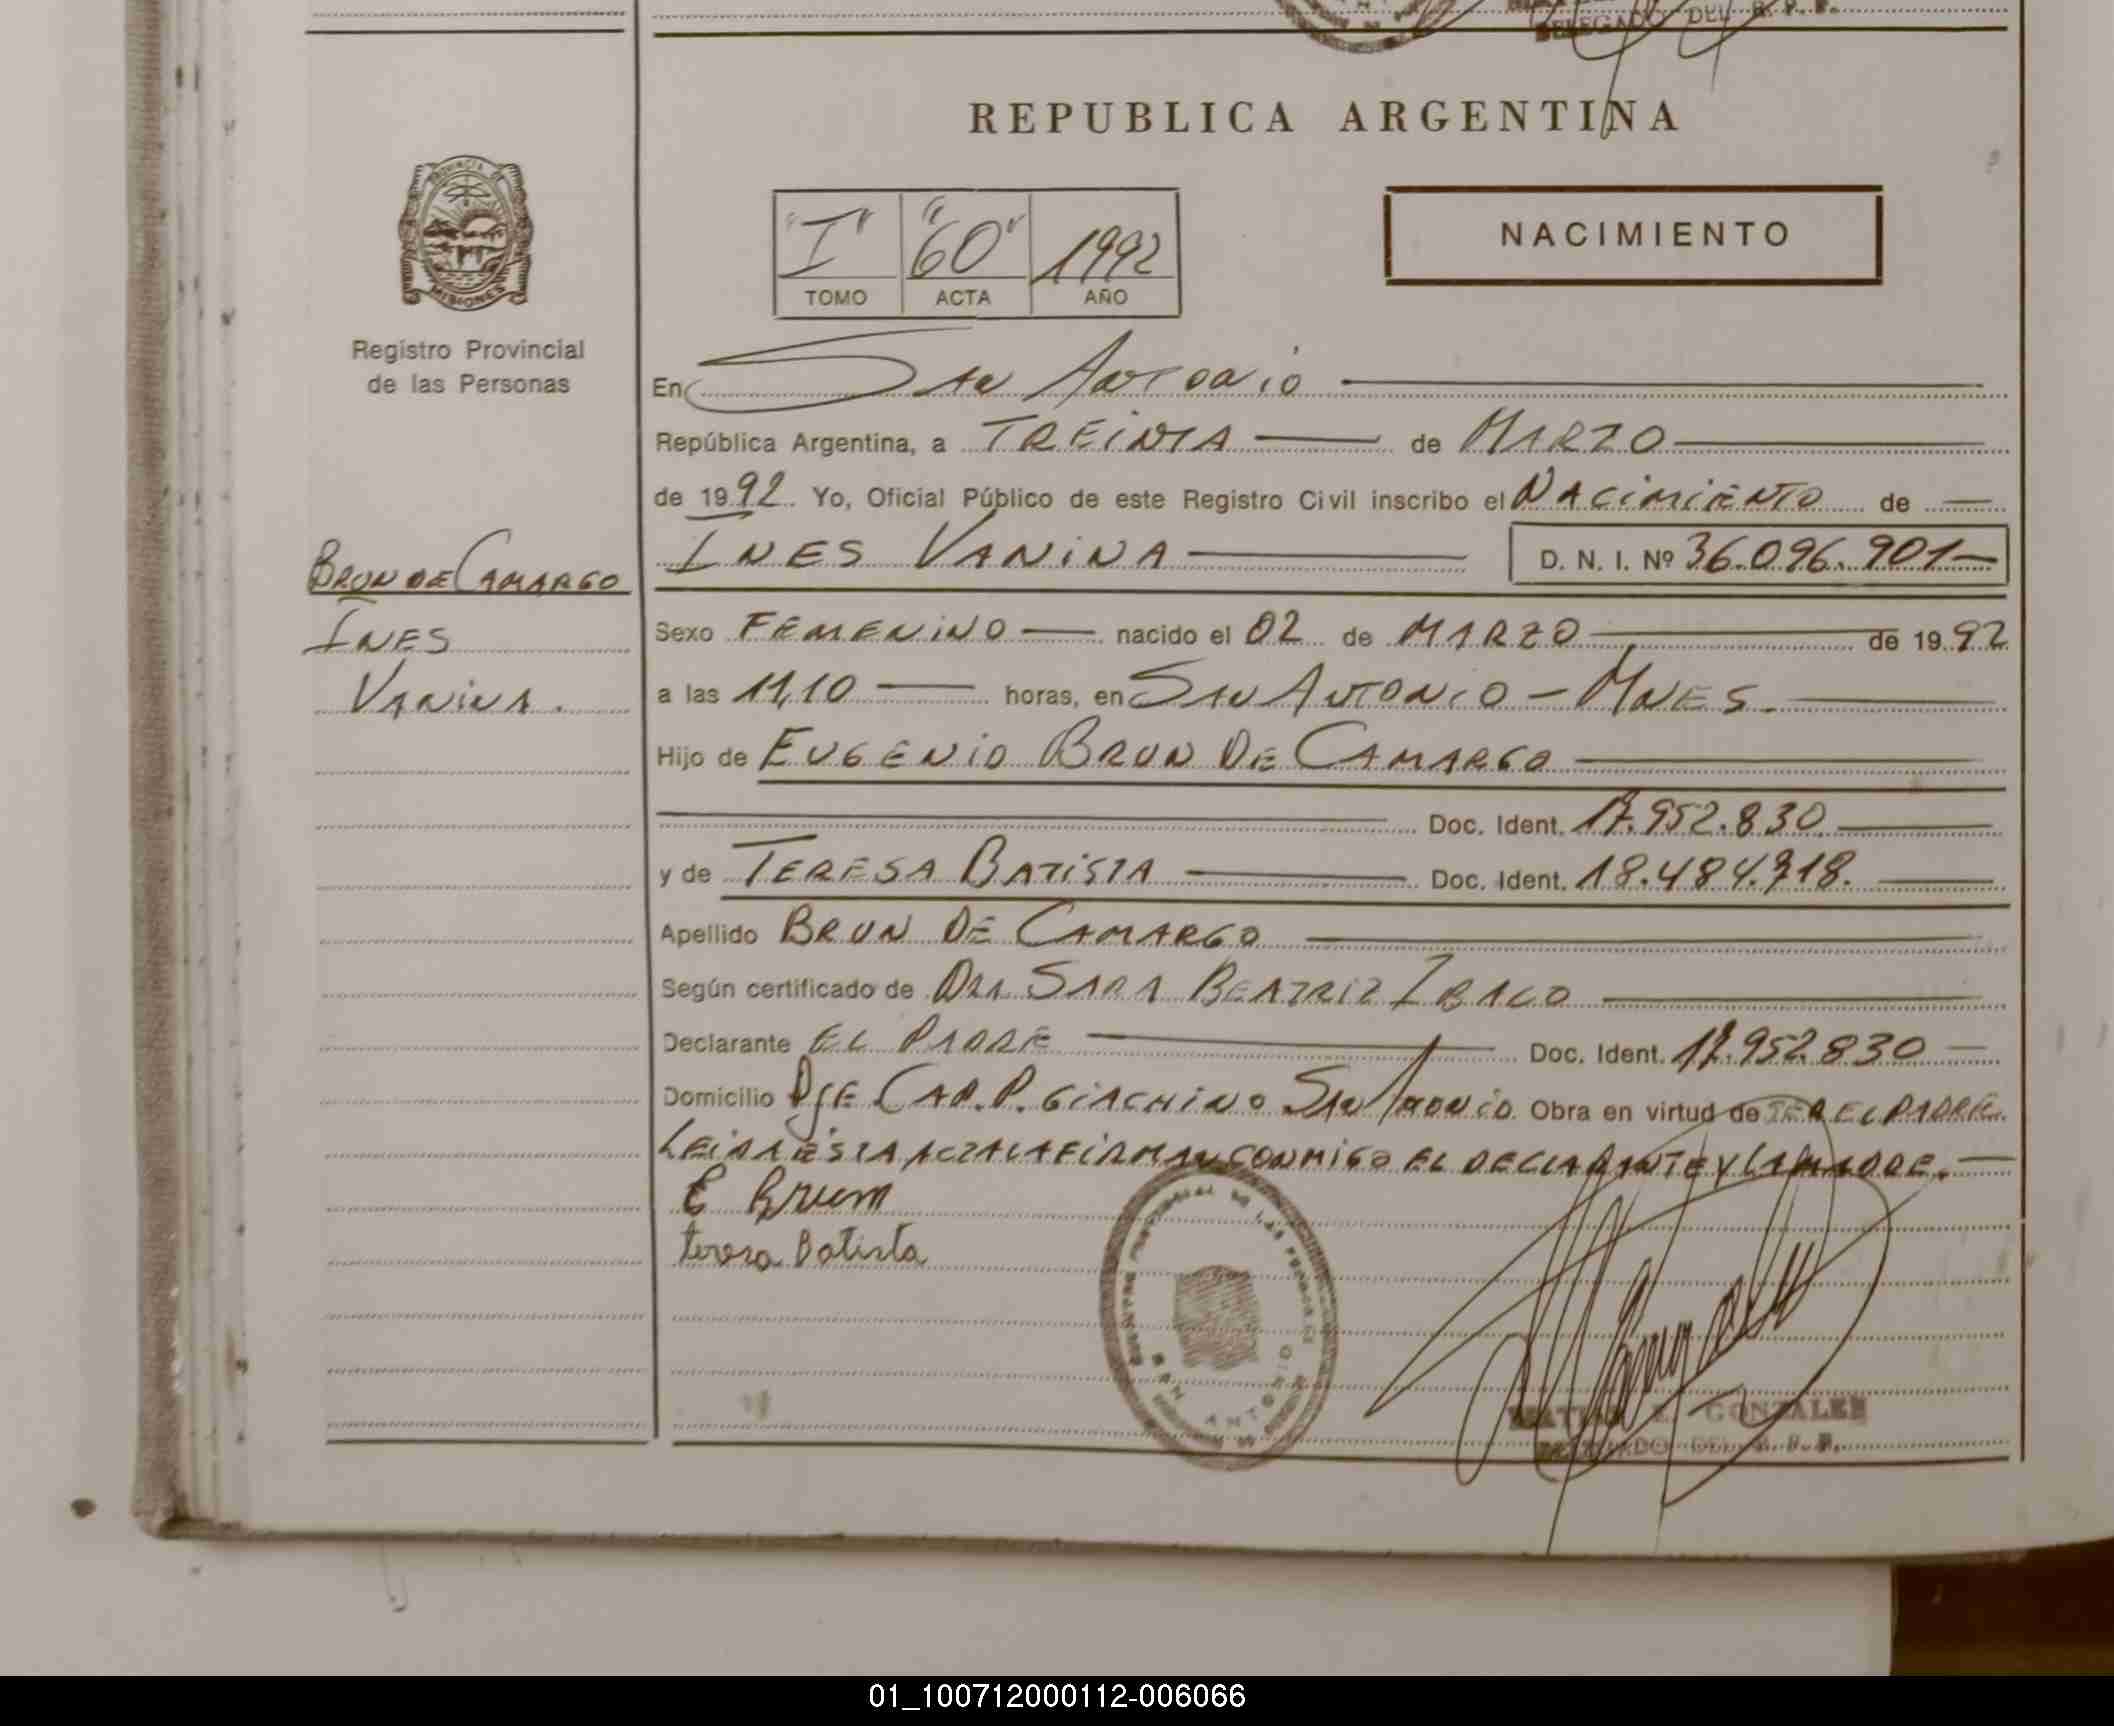 DELEGADO DEL R. P. P.
REPUBLICA ARGENTINA
PROVINCIA DE
MISIONES
Registro Provincial
de las Personas
"I" "60" 1992
TOMO ACTA AÑO
NACIMIENTO
En San Antonio
República Argentina, a TREINTA de MARZO
de 1992. Yo, Oficial Público de este Registro Civil inscribo el NACIMIENTO de
INES VANINA D. N. I. Nº 36.096.901
BRUN DE CAMARGO
INES
VANINA.
Sexo FEMENINO nacido el 02 de MARZO de 1992
a las 11,10 horas, en SAN ANTONIO - MNES.
Hijo de EUGENIO BRUN DE CAMARGO
Doc. Ident. 17.952.830
y de TERESA BATISTA Doc. Ident. 18.484.718.
Apellido BRUN DE CAMARGO
Según certificado de DRA SARA BEATRIZ IBALO
Declarante EL PADRE Doc. Ident. 17.952.830
Domicilio PJE CAP. P. GIACHINO SAN ANTONIO. Obra en virtud de SER EL PADRE.
LEIDA ESTA ACTA LA FIRMAN CONMIGO EL DECLARANTE Y LA MADRE.
E Brum
teresa Batista
SAN ANTONIO
GONZALEZ
DELEGADO DEL R. P. P.
01_100712000112-006066